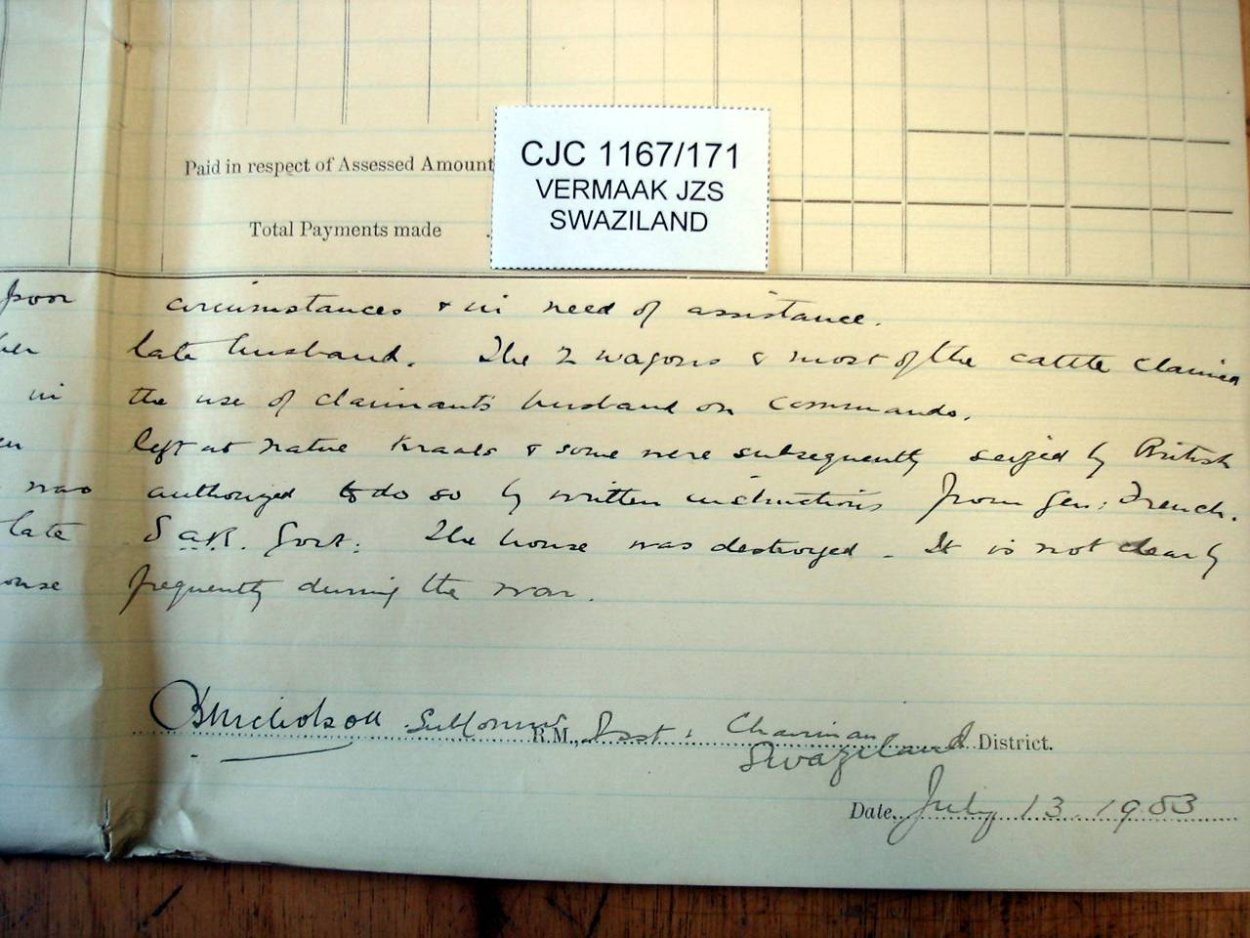 Paid in respect of Assessed Amount
Total Payments made
CJC 1167/171
VERMAAK JZS
SWAZILAND
poor circumstances & in need of assistance.
her late husband. The 2 wagons & most of the cattle claimed
in the use of claimant's husband on commando.
left at native Kraals & some were subsequently seized by British
was authorized to do so by written instructions from Gen: French.
late S.A.R. Govt: The house was destroyed - It is not clearly
frequently during the war.
Nicholson R.M., Asst: Chairman
Swaziland District.
Date July 13. 1903